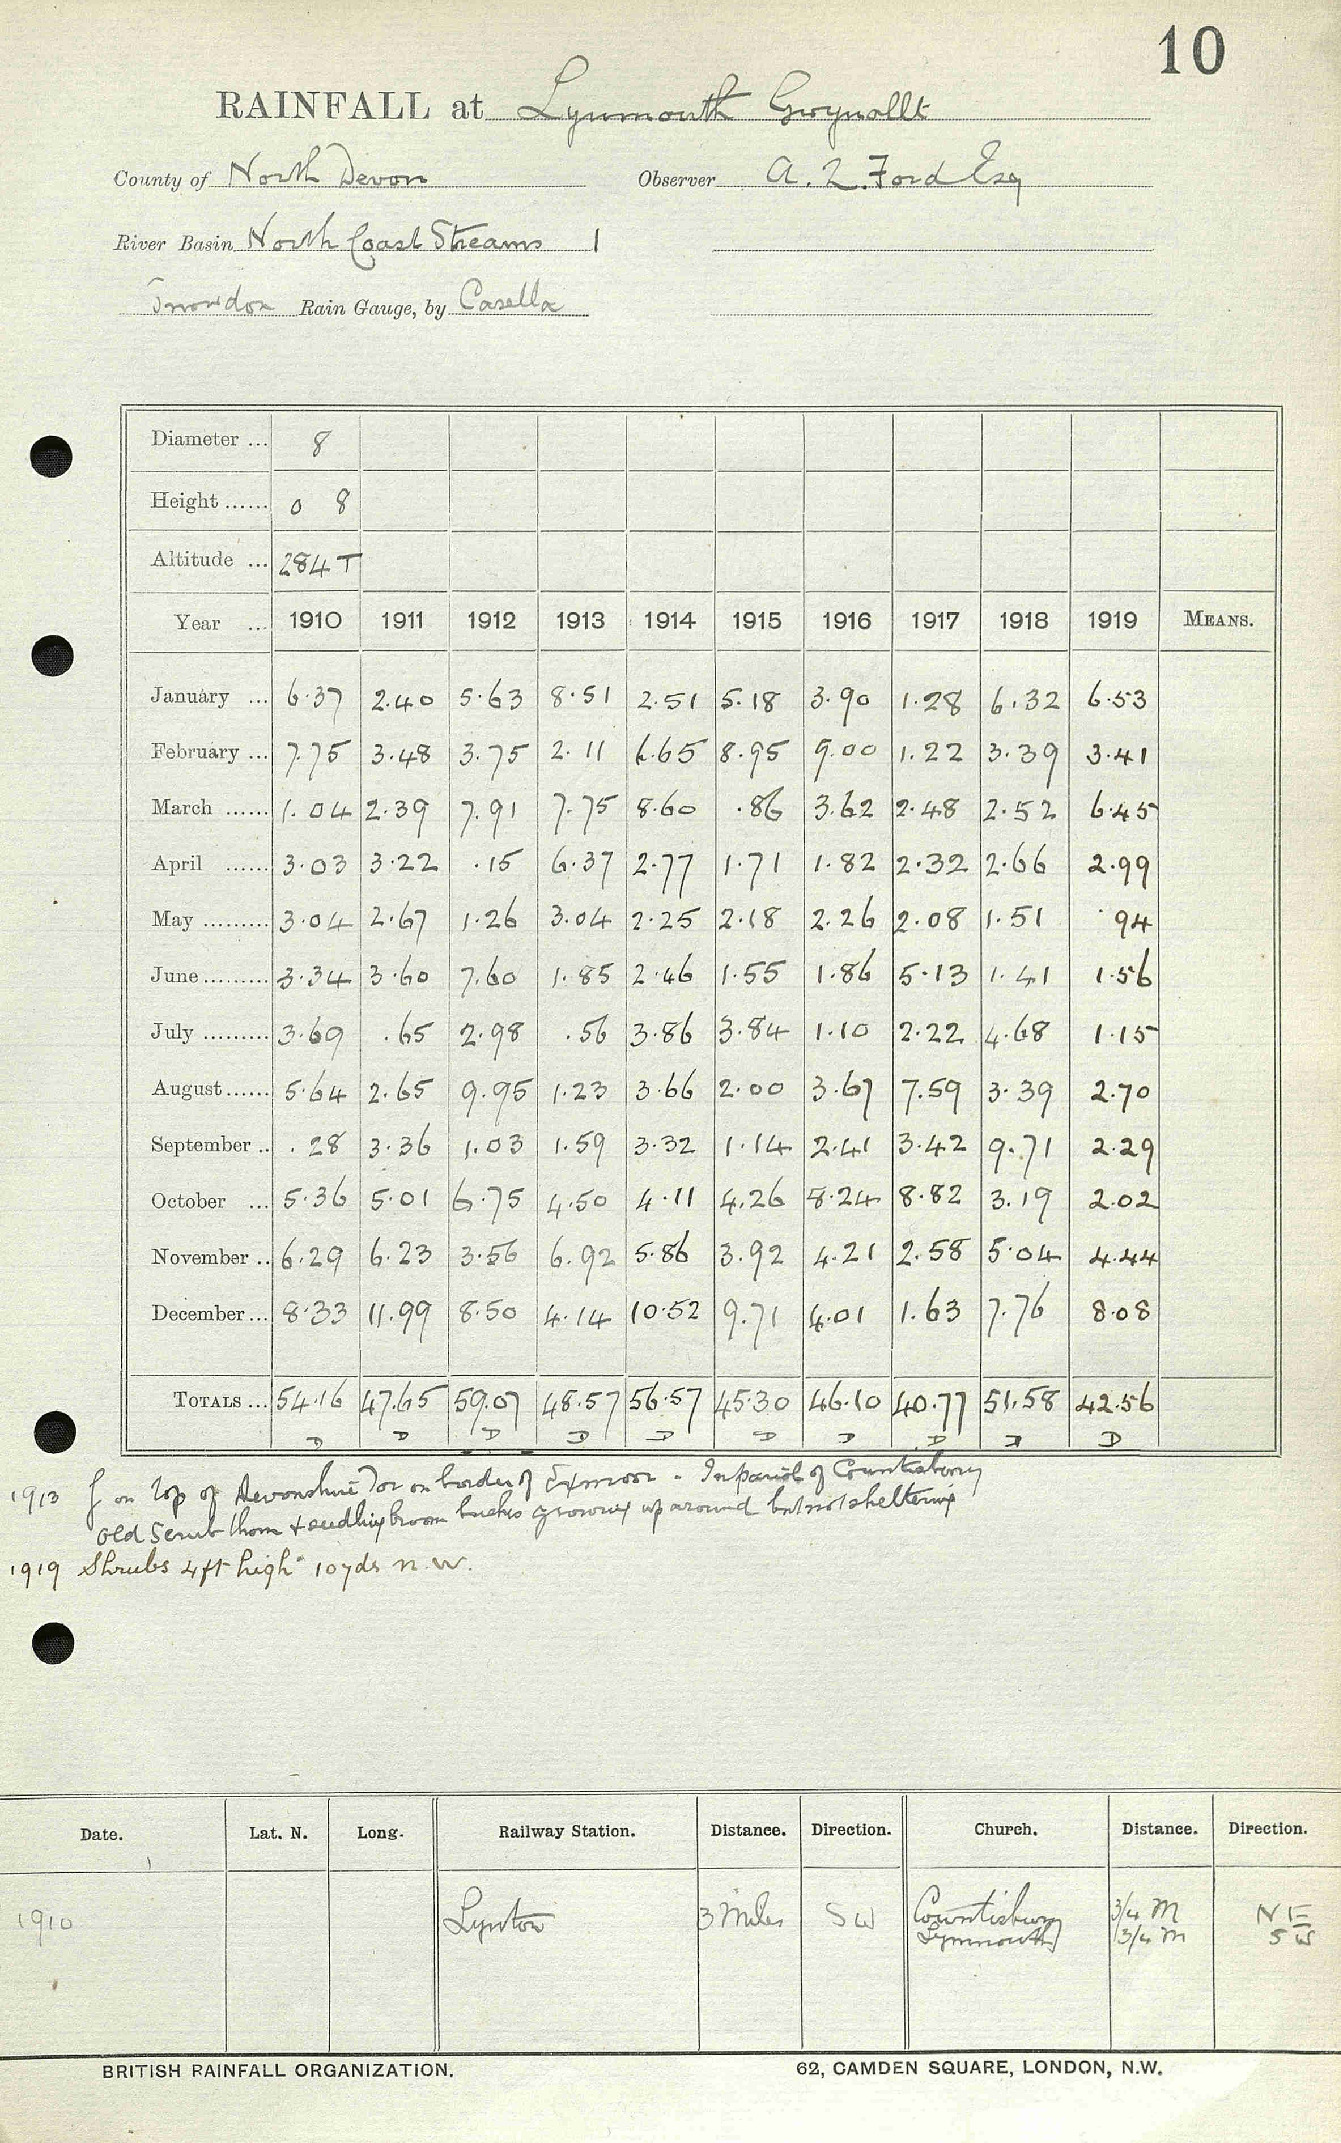 10
RAINFALL at Lynmouth Gwynallt
County of North Devon Observer A. L. Ford Esq
River Basin North Coast Streams 1
Snowdon Rain Gauge, by Casella
Diameter ... 8
Height ...... 0 8
Altitude ... 284 T
Year ... 1910 1911 1912 1913 1914 1915 1916 1917 1918 1919 MEANS.
January ... 6.37 2.40 5.63 8.51 2.51 5.18 3.90 1.28 6.32 6.53
February ... 7.75 3.48 3.75 2.11 6.65 8.95 9.00 1.22 3.39 3.41
March ...... 1.04 2.39 7.91 7.75 8.60 .86 3.62 2.48 2.52 6.45
April ...... 3.03 3.22 .15 6.37 2.77 1.71 1.82 2.32 2.66 2.99
May ......... 3.04 2.67 1.26 3.04 2.25 2.18 2.26 2.08 1.51 .94
June ......... 3.34 3.60 7.60 1.85 2.46 1.55 1.86 5.13 1.41 1.56
July ......... 3.69 .65 2.98 .56 3.86 3.84 1.10 2.22 4.68 1.15
August ...... 5.64 2.65 9.95 1.23 3.66 2.00 3.67 7.59 3.39 2.70
September .. .28 3.36 1.03 1.59 3.32 1.14 2.41 3.42 9.71 2.29
October ... 5.36 5.01 6.75 4.50 4.11 4.26 8.24 8.82 3.19 2.02
November .. 6.29 6.23 3.56 6.92 5.86 3.92 4.21 2.58 5.04 4.44
December ... 8.33 11.99 8.50 4.14 10.52 9.71 4.01 1.63 7.76 8.08
TOTALS ... 54.16 47.65 59.07 48.57 56.57 45.30 46.10 40.77 51.58 42.56
D D D D D D D D D D
1913 on top of Devonshire Tor on border of Exmoor - In parish of Countisbury
Old Scrub thorn + seedling broom bushes growing up around but not sheltering
1919 Shrubs 4 ft high 10 yds N.W.
Date. Lat. N. Long. Railway Station. Distance. Direction. Church. Distance. Direction.
1910 Lynton 3 Miles SW Countisbury 3/4 M NE
Lynmouth 3/4 M SW
BRITISH RAINFALL ORGANIZATION. 62, CAMDEN SQUARE, LONDON, N.W.